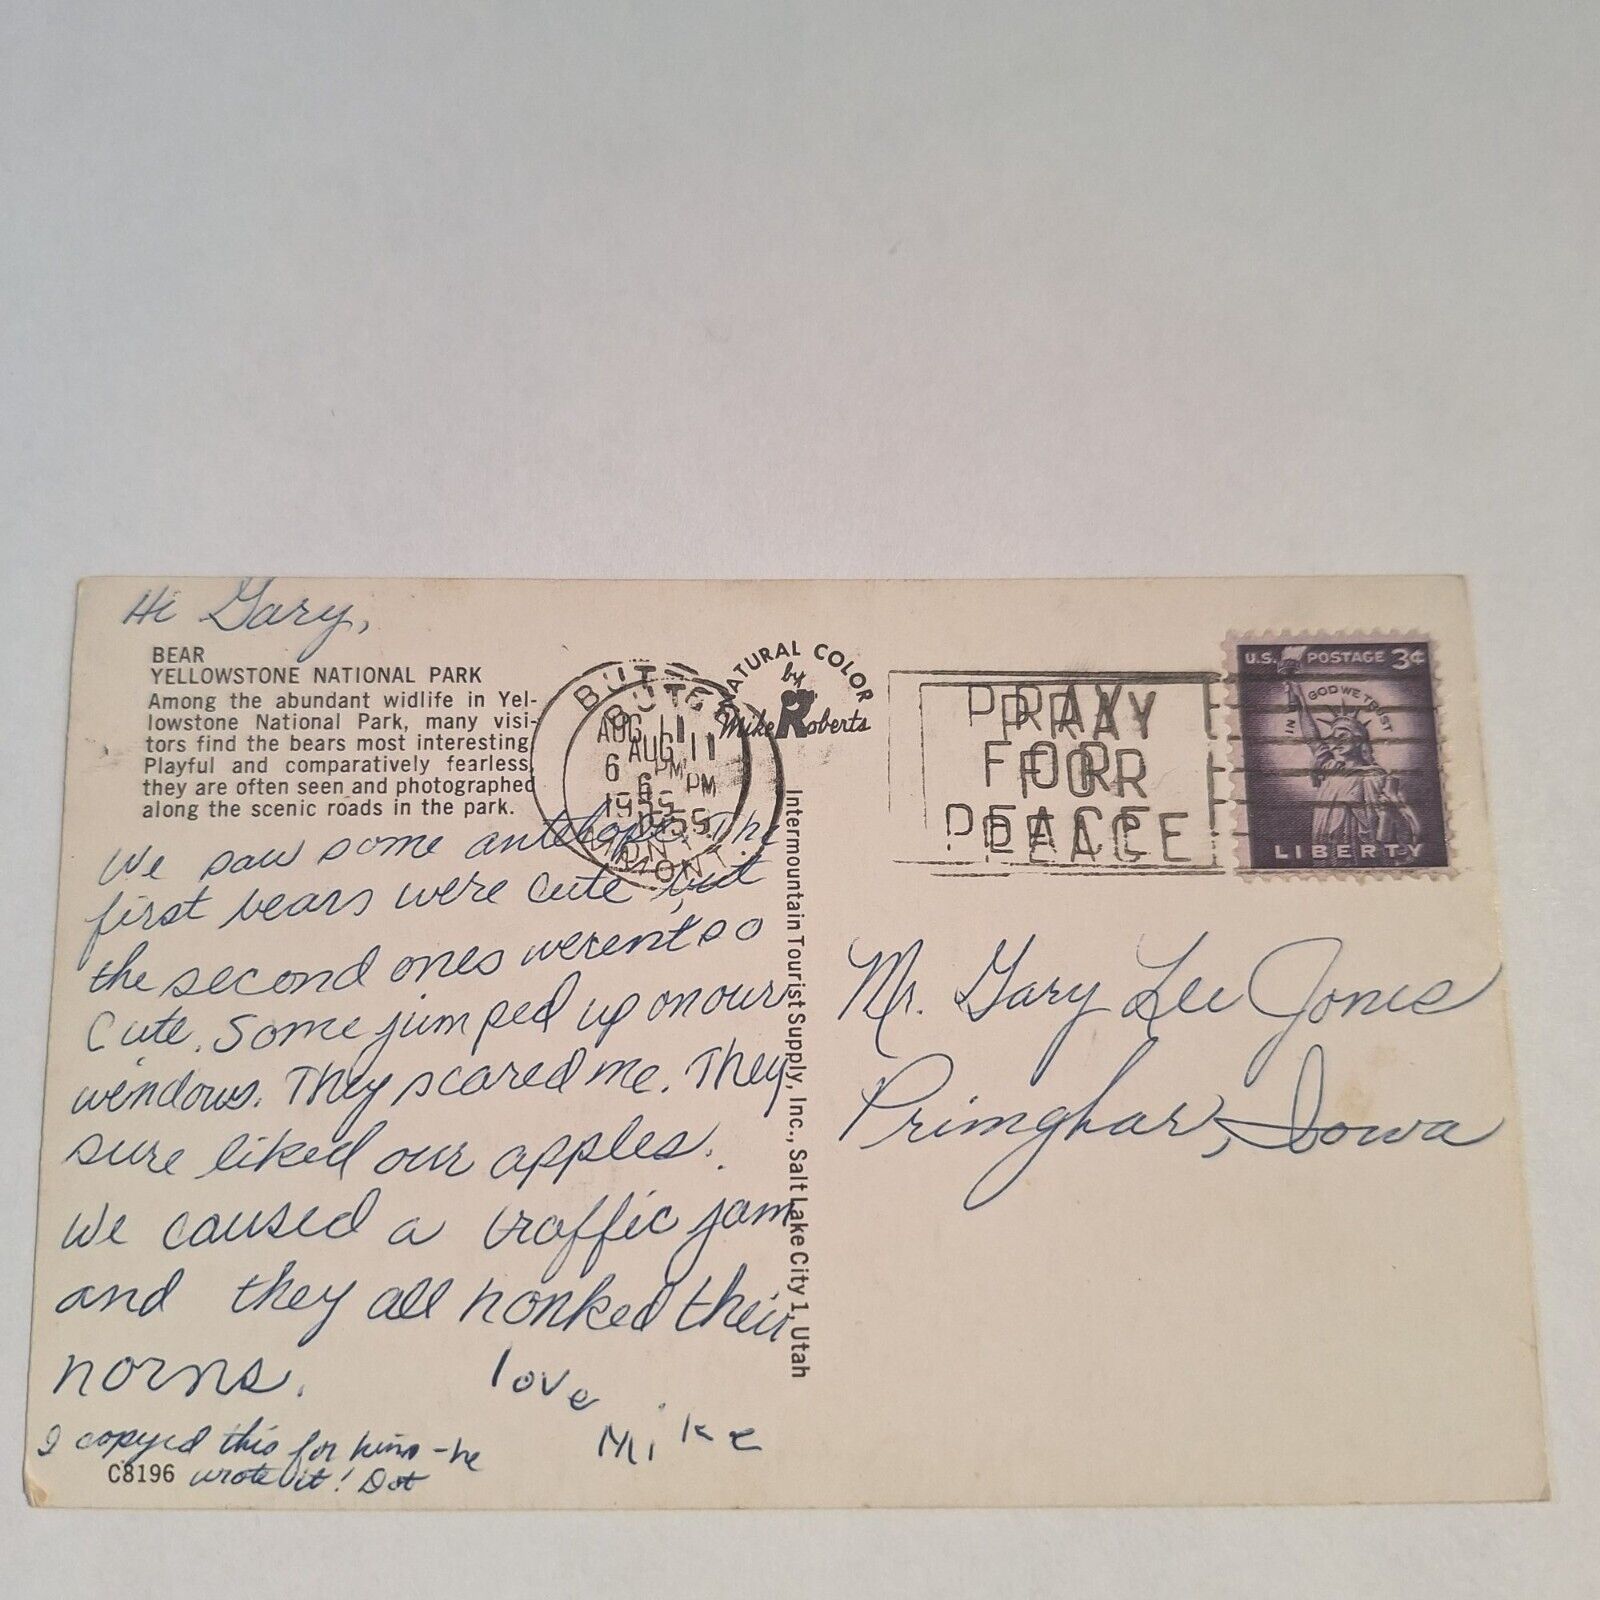 Hi Gary,
BEAR
YELLOWSTONE NATIONAL PARK
Among the abundant widlife in Yel-
lowstone National Park, many visi-
tors find the bears most interesting.
Playful and comparatively fearless,
they are often seen and photographed
along the scenic roads in the park.
We saw some antelope. The
first bears were cute but
the second ones werent so
cute. Some jumped up on our
windows. They scared me. They
sure liked our apples.
We caused a traffic jam
and they all honked their
horns.
love
Mike
I copyed this for him - he
wrote it! Dot
C8196
BUTTE
AUG 11
6 PM
1955
MONT.
BUTTE
AUG 11
6 PM
1955
MONT.
NATURAL COLOR
by
Mike Roberts
Intermountain Tourist Supply, Inc., Salt Lake City 1, Utah
PRAY
FOR
PEACE
PRAY
FOR
PEACE
U.S. POSTAGE 3¢
IN GOD WE TRUST
LIBERTY
Mr. Gary Lee Jones
Primghar, Iowa